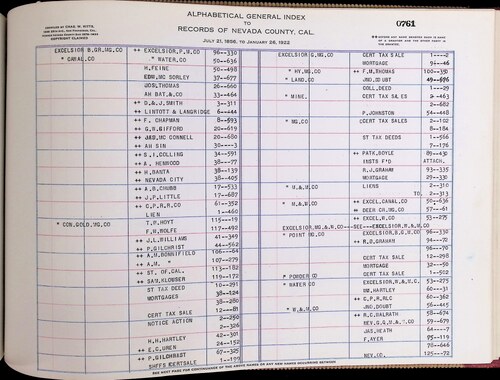 ALPHABETICAL GENERAL INDEX
TO
RECORDS OF NEVADA COUNTY, CAL.
JULY 21, 1856, TO JANUARY 26, 1922
COMPILED BY CHAS. W. KITTS,
COPYRIGHT CLAIMED
0761
EXCELSIOR B.GR.MG.CO ++ EXCELSIOR,P.M.CO 96--330
" CANAL,CO " WATER,CO 50--636
H,FEINE 50--498
EDW,MC SORLEY 37--677
JOS,THOMAS 26--660
AH BAT,&CO 33--464
++ D.&J,SMITH 3--311
++ LINTOTT & LANGRIDGE 6--44
++ F. CHAPMAN 8--593
++ G.R.GIFFORD 20--619
++ JAS,MC CONNELL 20--680
++ AH SIN 30---3
++ S.I,COLLING 34--591
++ A. HENWOOD 38---77
++ H,BANTA 38--139
++ NEVADA CITY 38--405
++ A,B,CHUBB 17--533
++ J,P,LITTLE 17--687
++ C,P,R,R,CO 61--352
LIEN 1--460
" CON,GOLD,MG,CO T,R,HOYT 115--19
F,H,ROLFE 117--492
++ J,L,WILLIAMS 41--349
++ P,GILCHRIST 44--562
++ A,M,BONNIFIELD 106--64
++ A,M, " 107--279
++ ST, OF,CAL. 113--182
++ SAM,KLOUSER 119--172
ST TAX DEED 10--291
MORTGAGES 38--124
38--280
CERT TAX SALE 12---81
NOTICE ACTION 2--250
2--326
H,H,HARTLEY 4--301
++ E,C,UREN 24--152
++ P,GILCHRAST 67--325
SHFFS CERTSALE 1--109
EXCELSIOR G,MG,CO CERT TAX SALE 1----2
MORTGAGE 94--46
" HY,MG,CO ++ F,M,THOMAS 100--350
" LAND,CO JND,COURT 49--676
COLL,DEED 1---29
" MINE, CERT TAX SALES 2-463
2--682
P,JOHNSTON 54--448
" MG,CO CERT TAX SALES 2--102
8--184
ST TAX DEEDS 1--566
7--176
++ PATK,BOYLE 89--430
INSTS F'D ATTACH.
R,J,GRAHAM 93--335
MORTGAGE 29--330
" M,&M,CO LIENS 2--310
TO, 2--313
" M,&M,CO ++ EXCEL,CANAL,CO 50--636
++ DEER CR,MG,CO 57---61
++ EXCEL,W,CO 53--275
EXCELSIOR,MG,&N,CO---SEE---EXCELSIOR,M,&M,CO
" POINT MG,CO EXCELSIOR,B,G,M,CO 96--330
++ R,D,GRAHAM 94--72
96--70
CERT TAX SALE 12--298
MORTGAGE 32--50
" POWDER CO CERT TAX SALE 1--502
" WATER CO EXCELSIOR,M,&M,C, 53--275
WM,HARTLEY 60---31
++ C,P,R,RLC 60--362
JND,DOUBT 56--445
" W,&M,CO ++ H,C,HALRATH 58--674
REV,G,G,M,&M,CO 59--679
JAS,HEATH 64---7
F,AYER 95--119
76--646
REV,CO. 125--72
SEE NEXT PAGE FOR CONTINUANCE OF THE ABOVE NAMES OR ANY NEW NAMES BEGINNING BETWEEN